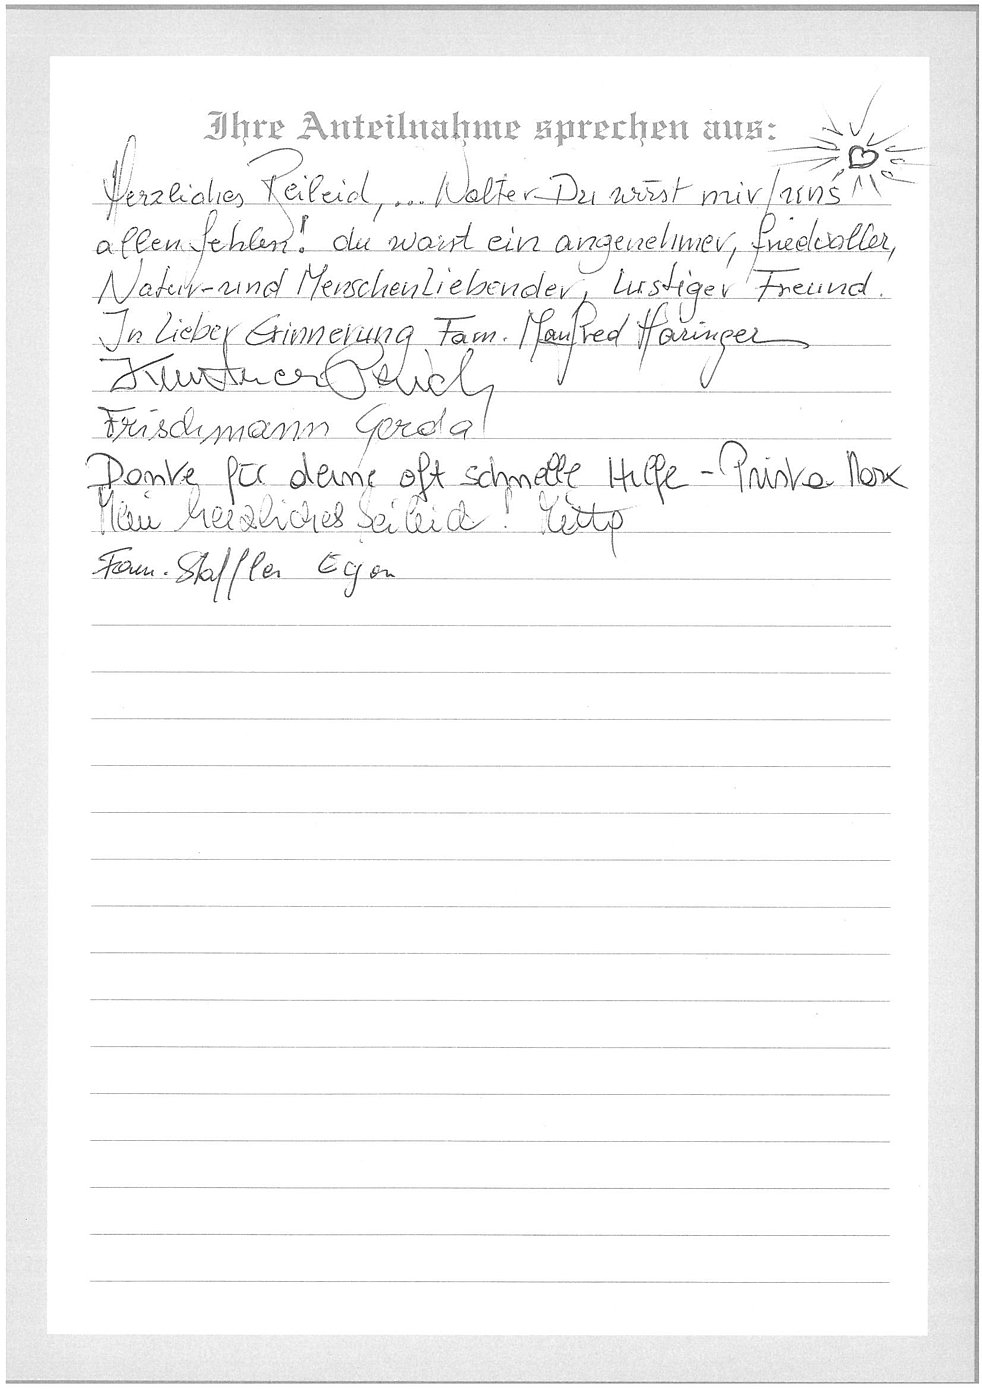 Ihre Anteilnahme sprechen aus:
Herzliches Beileid, ... Walter Du wirst mir/uns
allen fehlen! du warst ein angenehmer, friedvoller,
Natur- und Menschenliebender, lustiger Freund.
In lieber Erinnerung Fam. Manfred Haringer
Frischmann Gerda
Danke für deine oft schnelle Hilfe - Priska
Mein herzliches Beileid!
Fam. Staffler Egon